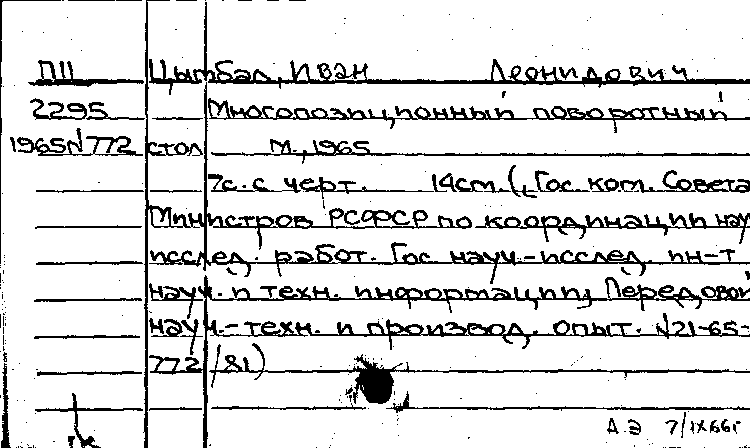 ПII Цымбал, Иван Леонидович
2295 Многопозиционный поворотный
1965№772 стол М., 1965
7с. с черт. 14см. (Гос. ком. Совета
Министров РСФСР по координации нау
исслед. работ. Гос науч-исслед. ин-т
науч. и техн. информации; Передовой
науч.-техн. и производ. опыт. №21-65-
772/81)
А.Э 7/IX66г